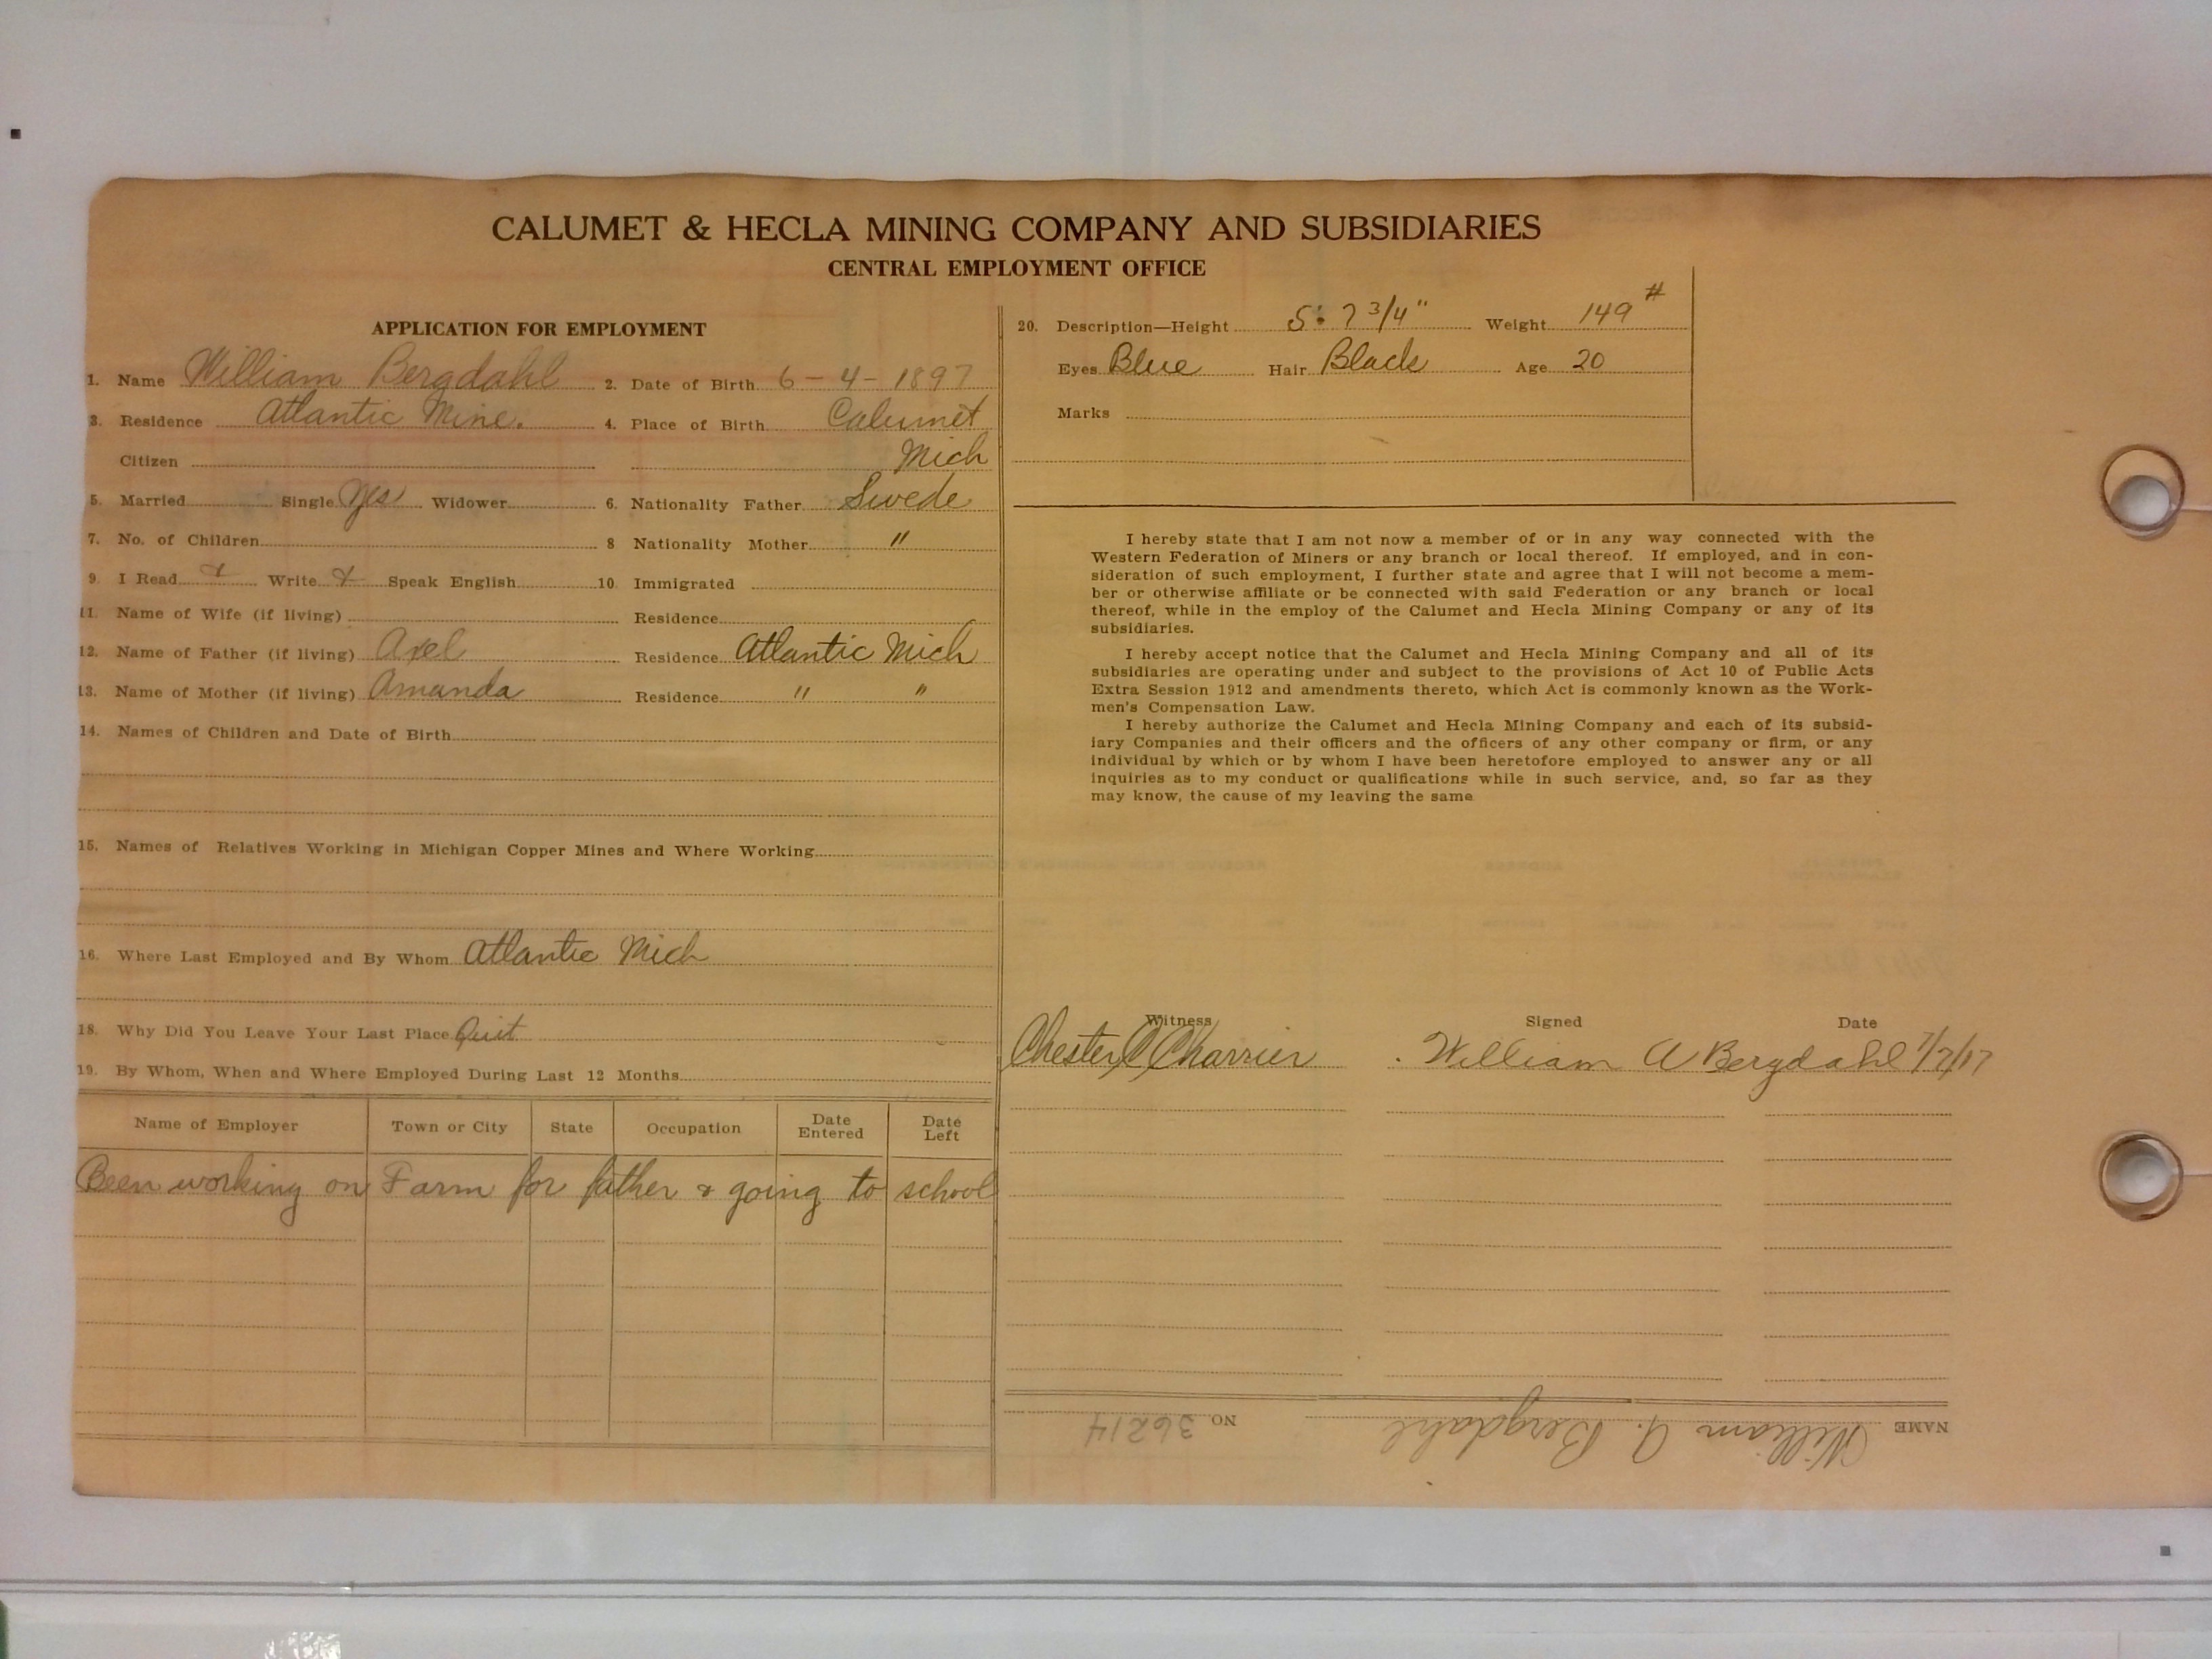 CALUMET & HECLA MINING COMPANY AND SUBSIDIARIES
CENTRAL EMPLOYMENT OFFICE
APPLICATION FOR EMPLOYMENT
1. Name William Bergdahl 2. Date of Birth 6-4-1897
3. Residence Atlantic Mine. 4. Place of Birth Calumet
Citizen Mich
5. Married Single Yes Widower 6. Nationality Father Swede
7. No. of Children 8 Nationality Mother "
9. I Read Write Speak English 10. Immigrated
11. Name of Wife (if living) Residence
12. Name of Father (if living) Axel Residence Atlantic Mich
13. Name of Mother (if living) Amanda Residence " "
14. Names of Children and Date of Birth
15. Names of Relatives Working in Michigan Copper Mines and Where Working
16. Where Last Employed and By Whom Atlantic Mich
18. Why Did You Leave Your Last Place Quit
19. By Whom, When and Where Employed During Last 12 Months
Name of Employer Town or City State Occupation Date Entered Date Left
Been working on Farm for father & going to school
20. Description—Height 5: 7 3/4" Weight 149#
Eyes Blue Hair Black Age 20
Marks
I hereby state that I am not now a member of or in any way connected with the
Western Federation of Miners or any branch or local thereof. If employed, and in con-
sideration of such employment, I further state and agree that I will not become a mem-
ber or otherwise affiliate or be connected with said Federation or any branch or local
thereof, while in the employ of the Calumet and Hecla Mining Company or any of its
subsidiaries.
I hereby accept notice that the Calumet and Hecla Mining Company and all of its
subsidiaries are operating under and subject to the provisions of Act 10 of Public Acts
Extra Session 1912 and amendments thereto, which Act is commonly known as the Work-
men's Compensation Law.
I hereby authorize the Calumet and Hecla Mining Company and each of its subsid-
iary Companies and their officers and the officers of any other company or firm, or any
individual by which or by whom I have been heretofore employed to answer any or all
inquiries as to my conduct or qualifications while in such service, and, so far as they
may know, the cause of my leaving the same
Witness Signed Date
Chester C Charrier William A Bergdahl 7/7/17
NAME William A. Bergdahl NO. 36214